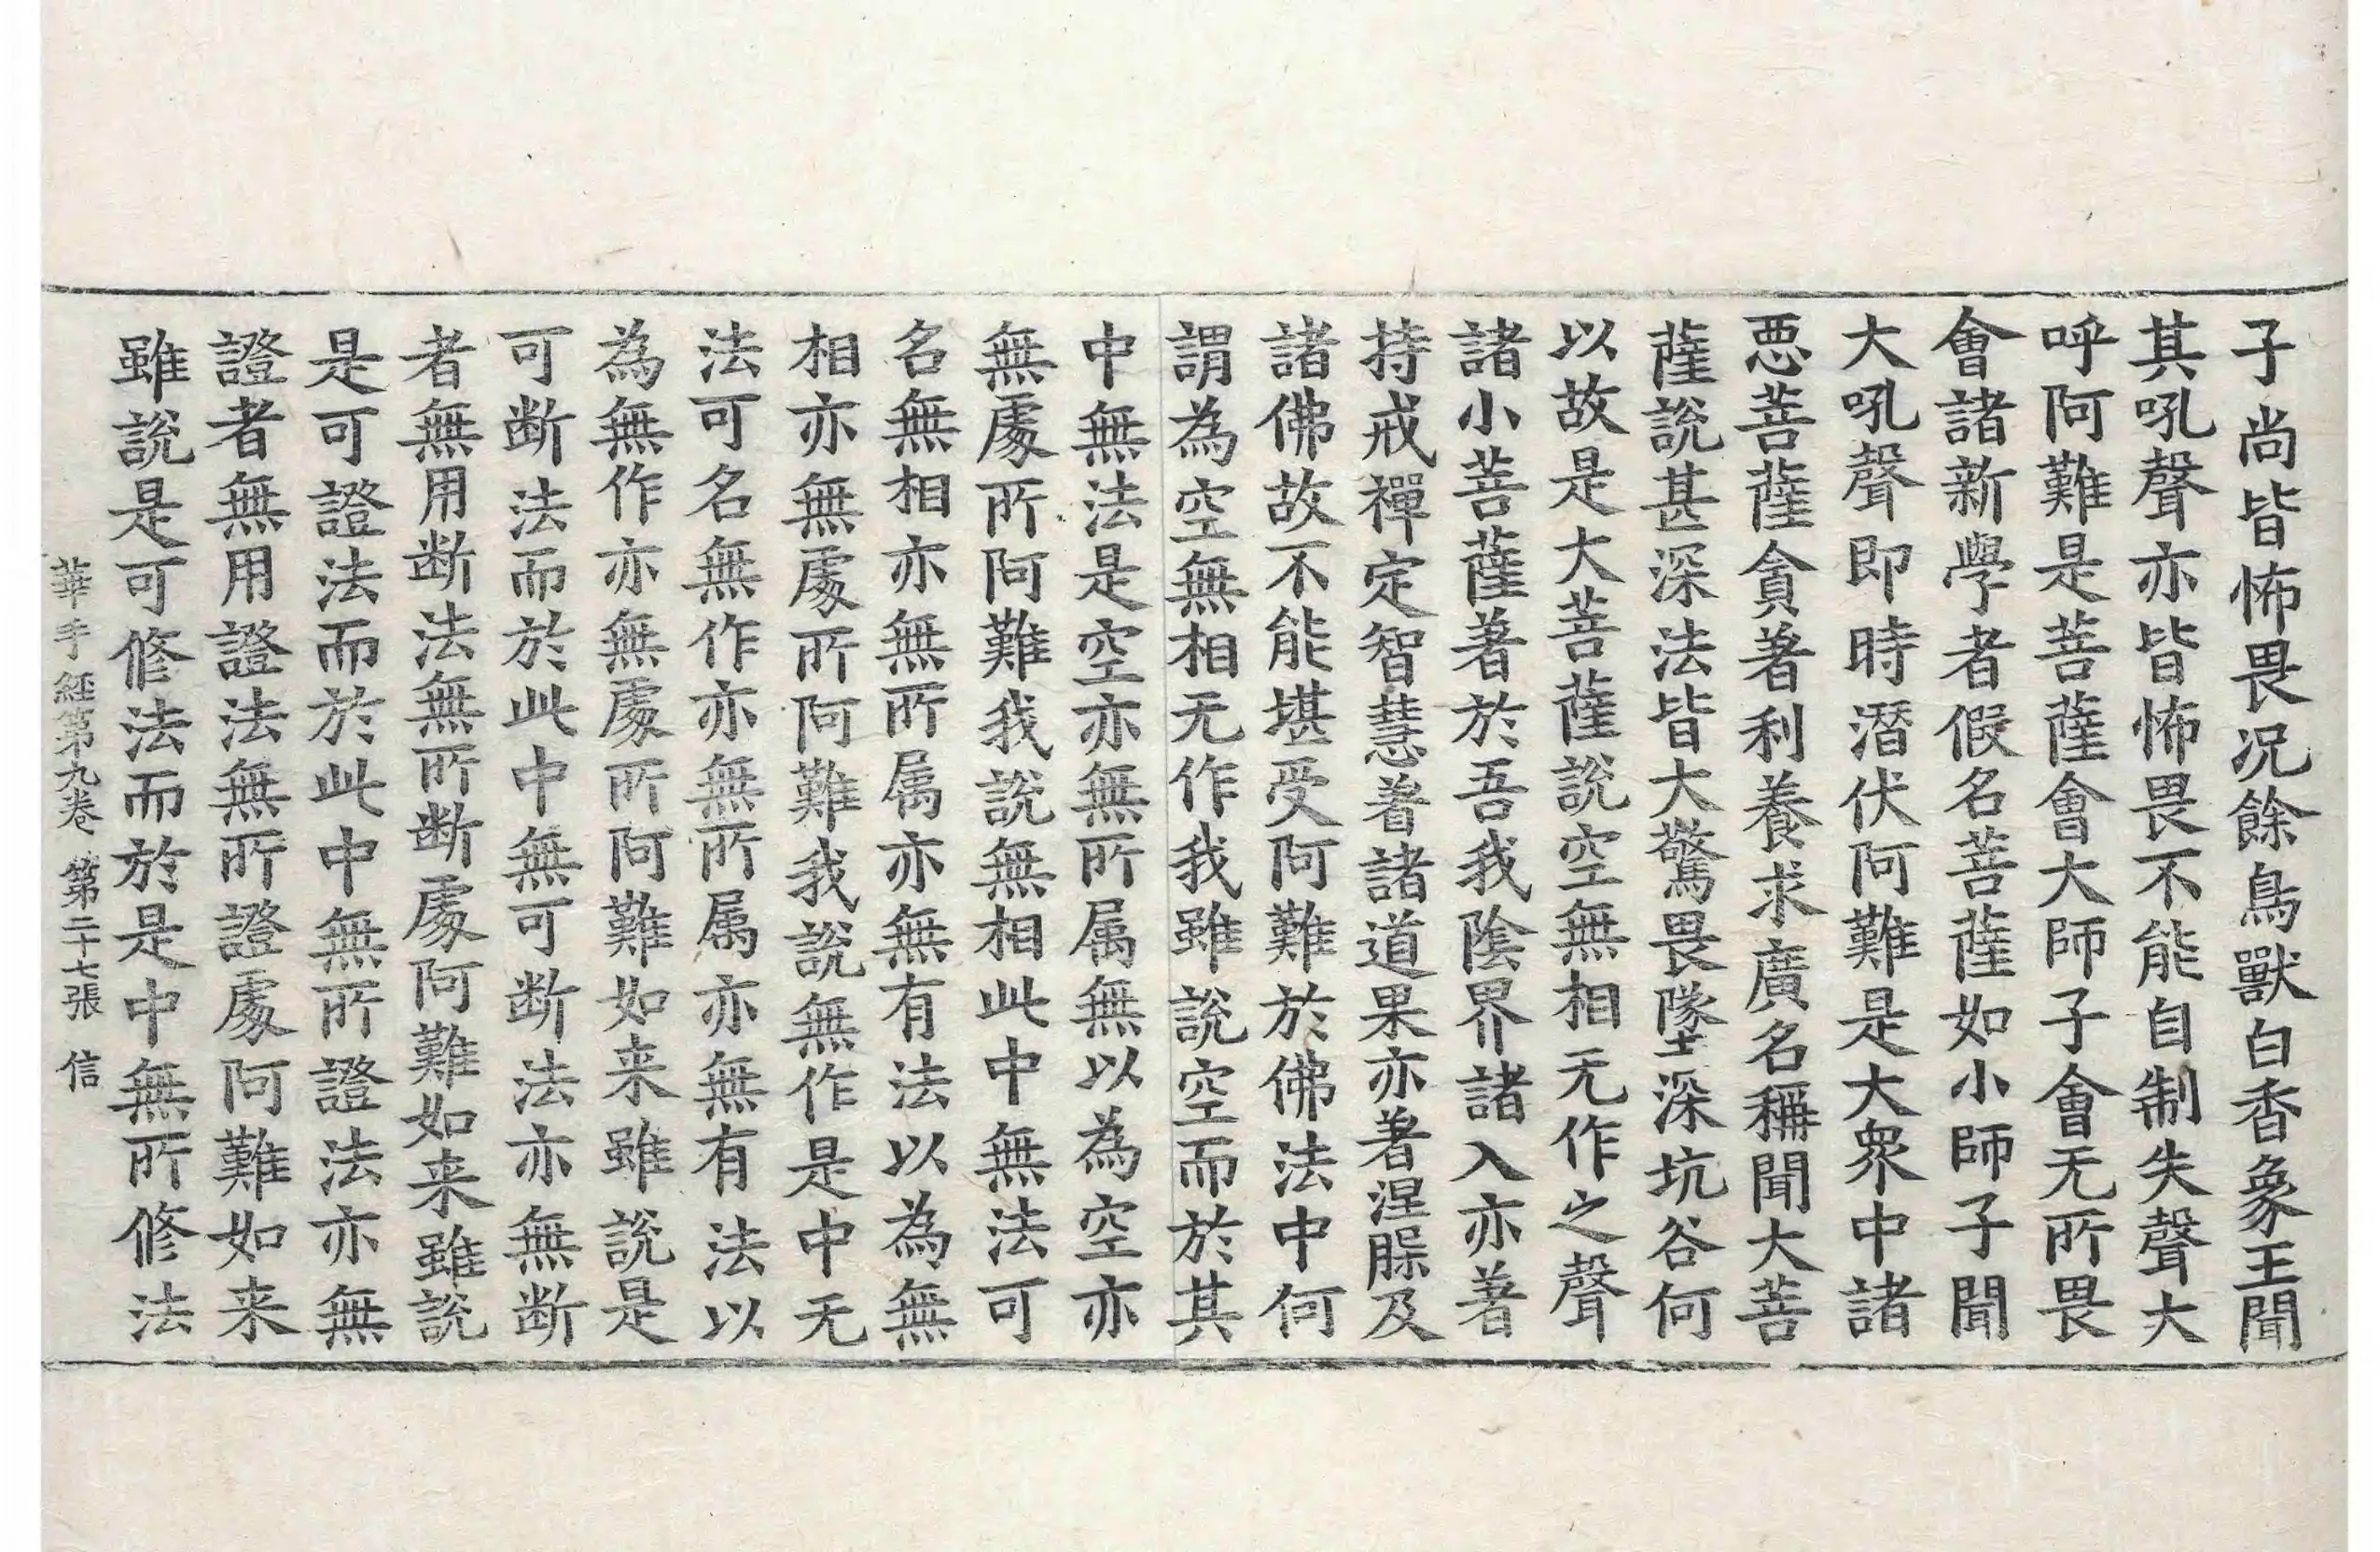 子尚皆怖畏况餘鳥獸白香象王聞
其吼聲亦皆怖畏不能自制失聲大
呼阿難是菩薩會大師子會无所畏
會諸新學者假名菩薩如小師子聞
大吼聲即時潛伏阿難是大衆中諸
惡菩薩貪著利養求廣名稱聞大菩
薩說甚深法皆大驚畏墜深坑谷何
以故是大菩薩說空無相无作之聲
諸小菩薩著於吾我陰界諸入亦著
持戒禪定智慧著諸道果亦著涅槃及
諸佛故不能堪受阿難於佛法中何
謂為空無相无作我雖說空而於其
中無法是空亦無所属無以為空亦
無處所阿難我說無相此中無法可
名無相亦無所属亦無有法以為無
相亦無處所阿難我說無作是中无
法可名無作亦無所属亦無有法以
為無作亦無處所阿難如来雖說是
可断法而於此中無可断法亦無断
者無用断法無所断處阿難如来雖說
是可證法而於此中無所證法亦無
證者無用證法無所證處阿難如来
雖說是可修法而於是中無所修法
華手經第九卷 第二十七張 信